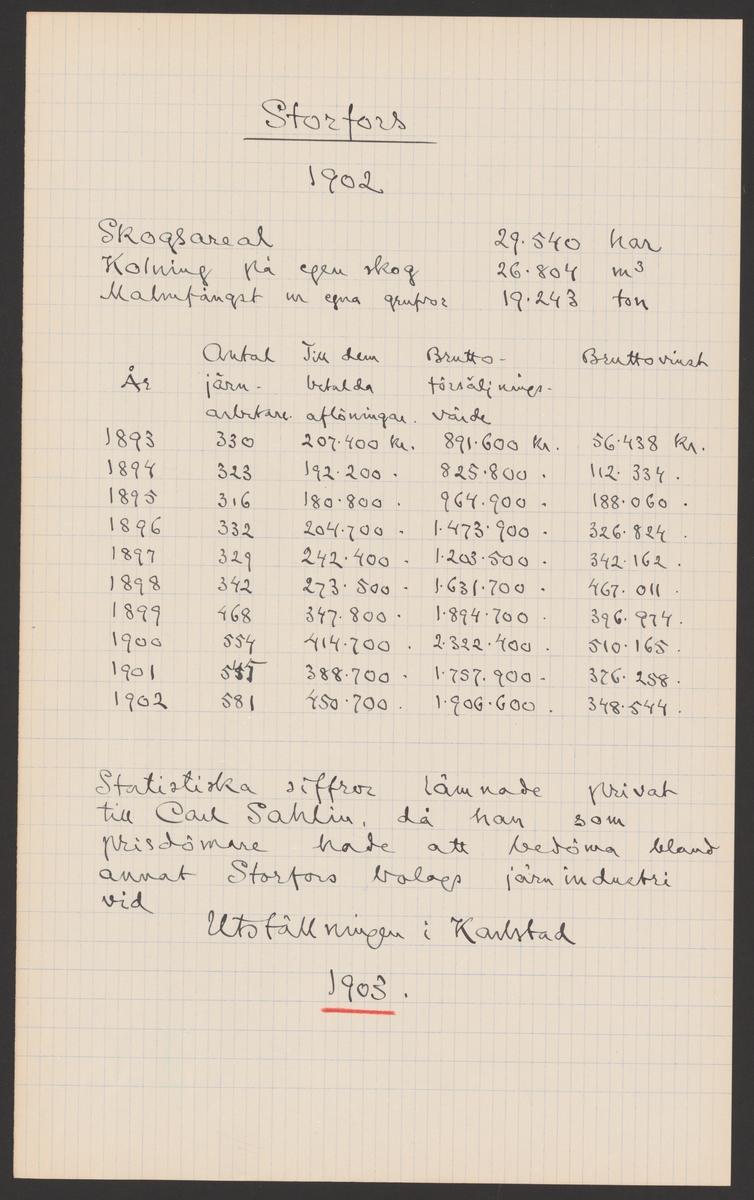 Storfors
1902
Skogsareal 29.540 har
Kolning på egen skog 26.804 m³
Malmfångst ur egna grufvor 19.243 ton
År Antal järn- arbetare. Till dem betalda aflöningar. Brutto- försäljnings- värde Bruttovinst
1893 330 207.400 kr. 891.600 kr. 56.438 kr.
1894 323 192.200 . 825.800 . 112.334 .
1895 316 180.800 . 964.900 . 188.060 .
1896 332 204.700 . 1.473.900 . 326.824 .
1897 329 242.400 . 1.203.500 . 342.162 .
1898 342 273.500 . 1.631.700 . 467.011 .
1899 468 347.800 . 1.894.700 . 396.974 .
1900 554 414.700 . 2.322.400 . 510.165 .
1901 388.700 . 1.757.900 . 376.258 .
1902 581 450.700 . 1.906.600 . 348.544 .
Statistiska siffror lämnade privat
till Carl Sahlin, då han som
prisdömare hade att bedöma bland
annat Storfors bolags järnindustri
vid
Utställningen i Karlstad
1903.